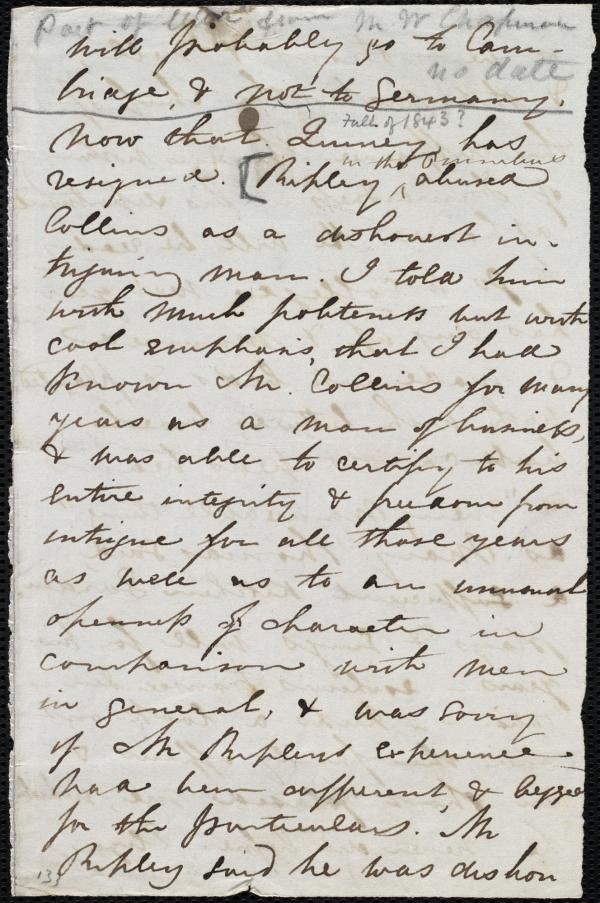 Part of letter from M W Chapman
no date
will probably go to Cam-
bridge, & not to Germany,
Fall of 1843?
now that Quincy has
in the Omnibus
resigned. [Ripley ^ abused
Collins as a dishonest in-
triguing man. I told him
with much politeness but with
cool emphasis, that I had
known Mr. Collins for many
years as a man of business,
& was able to certify to his
entire integrity & freedom from
intrigue for all those years
as well as to an unusual
openness of character in
comparison with men
in general, & was sorry
if Mr Ripley's experience
had been different & begged
for the particulars. Mr
Ripley said he was dishon
133